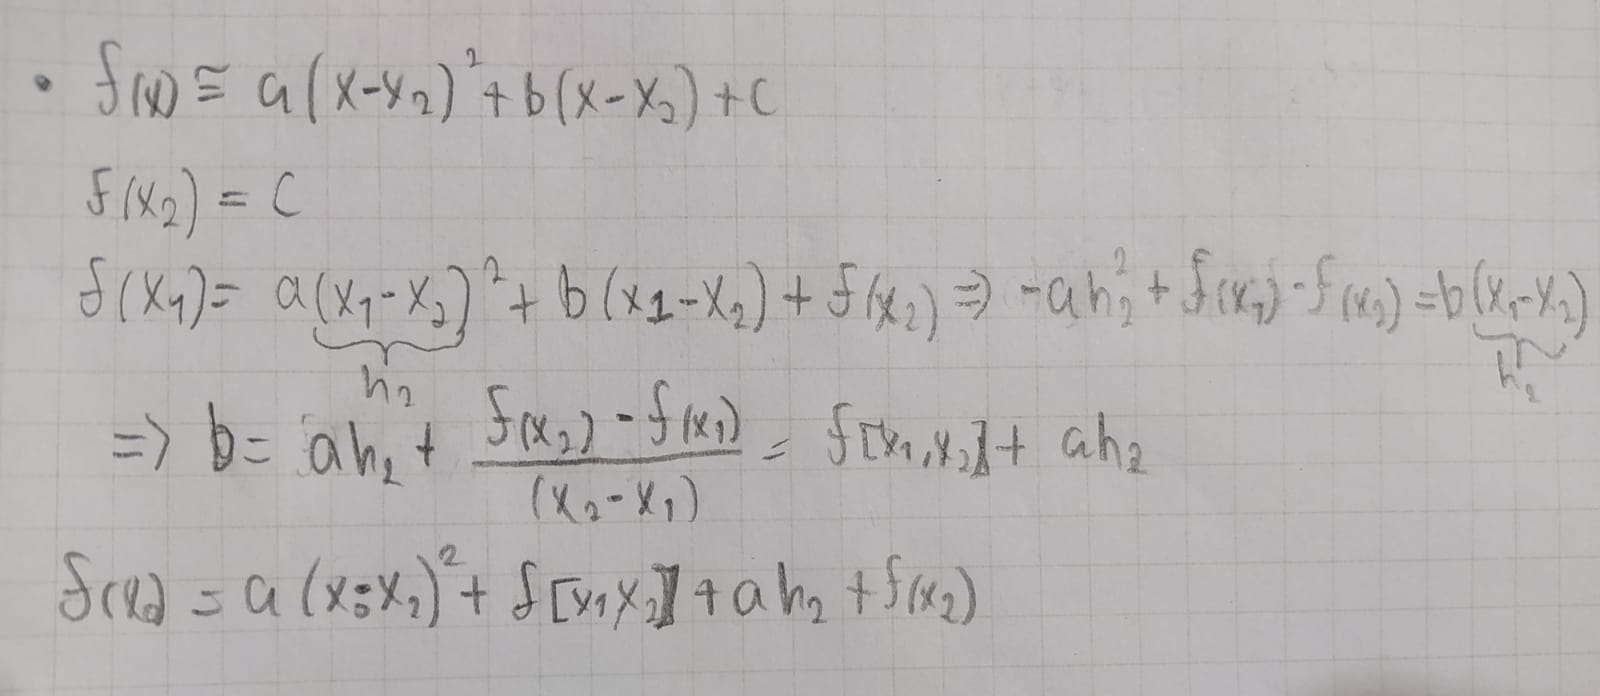 • f(x) ≅ a(x-x₂)² + b(x-x₂) + c
f(x₂) = c
f(x₁) = a(x₁-x₂)² + b(x₁-x₂) + f(x₂) => -ah₂² + f(x₁) - f(x₂) = b(x₁-x₂)
h₂ h₂
=> b = ah₂ + (f(x₂) - f(x₁))/(x₂-x₁) = f[x₁,x₂] + ah₂
f(x₀) = a(x₀-x₂)² + f[x₁x₂] + ah₂ + f(x₂)